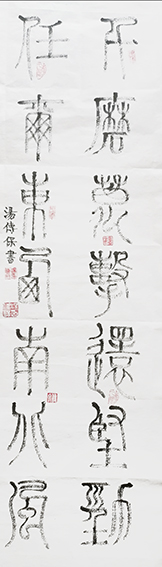 千磨万擊還堅勁
任爾東西南北風
湯傳保書